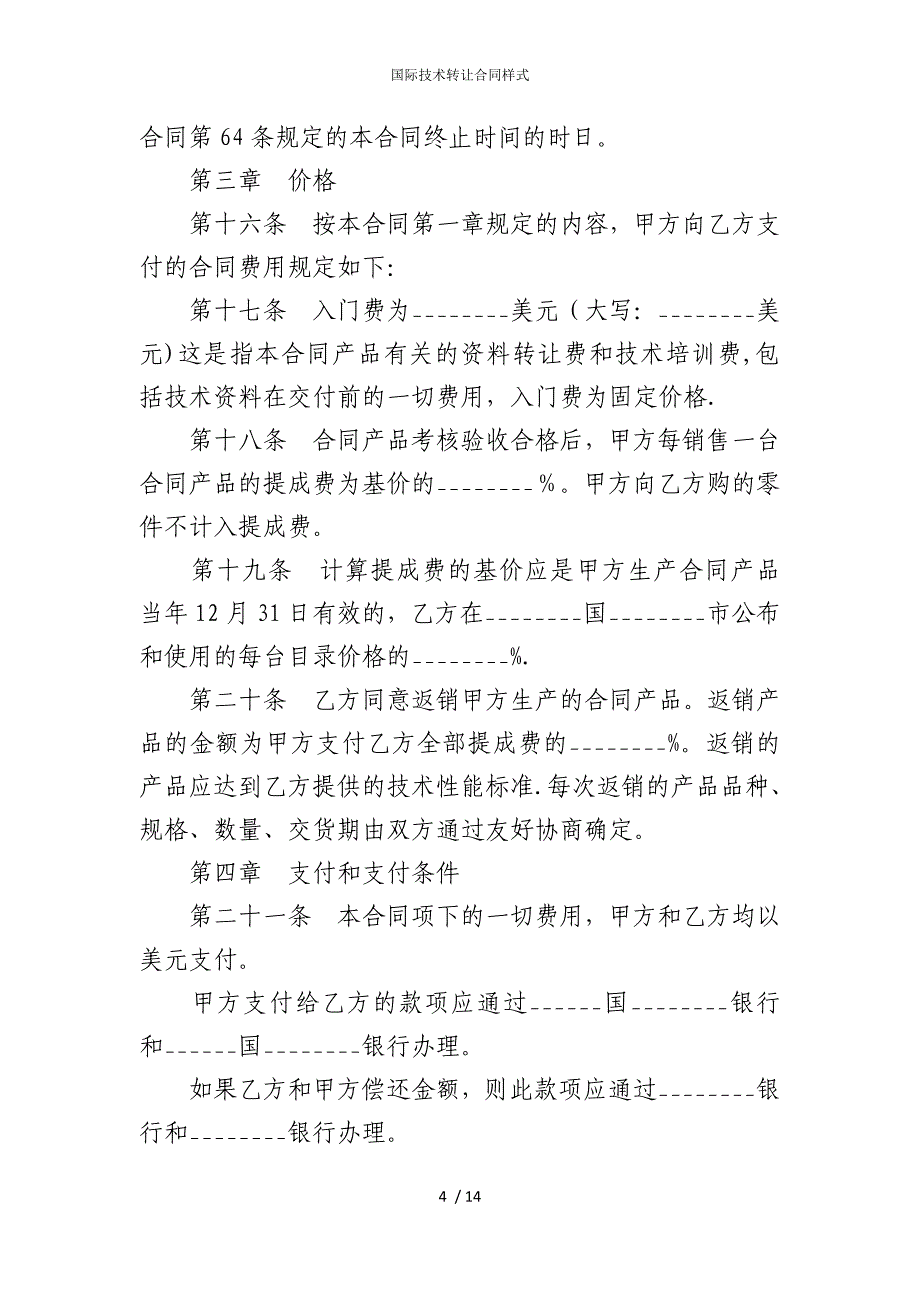 国际技术转让合同样式
合同第 64 条规定的本合同终止时间的时日。
第三章　价格
第十六条　按本合同第一章规定的内容，甲方向乙方支
付的合同费用规定如下：
第十七条　入门费为________美元（大写：________美
元)这是指本合同产品有关的资料转让费和技术培训费,包
括技术资料在交付前的一切费用，入门费为固定价格.
第十八条　合同产品考核验收合格后，甲方每销售一台
合同产品的提成费为基价的________%。甲方向乙方购的零
件不计入提成费。
第十九条　计算提成费的基价应是甲方生产合同产品
当年 12 月 31 日有效的，乙方在________国________市公布
和使用的每台目录价格的________%.
第二十条　乙方同意返销甲方生产的合同产品。返销产
品的金额为甲方支付乙方全部提成费的________%。返销的
产品应达到乙方提供的技术性能标准.每次返销的产品品种、
规格、数量、交货期由双方通过友好协商确定。
第四章　支付和支付条件
第二十一条　本合同项下的一切费用，甲方和乙方均以
美元支付。
甲方支付给乙方的款项应通过______国________银行
和______国________银行办理。
如果乙方和甲方偿还金额，则此款项应通过________银
行和________银行办理。
4 / 14